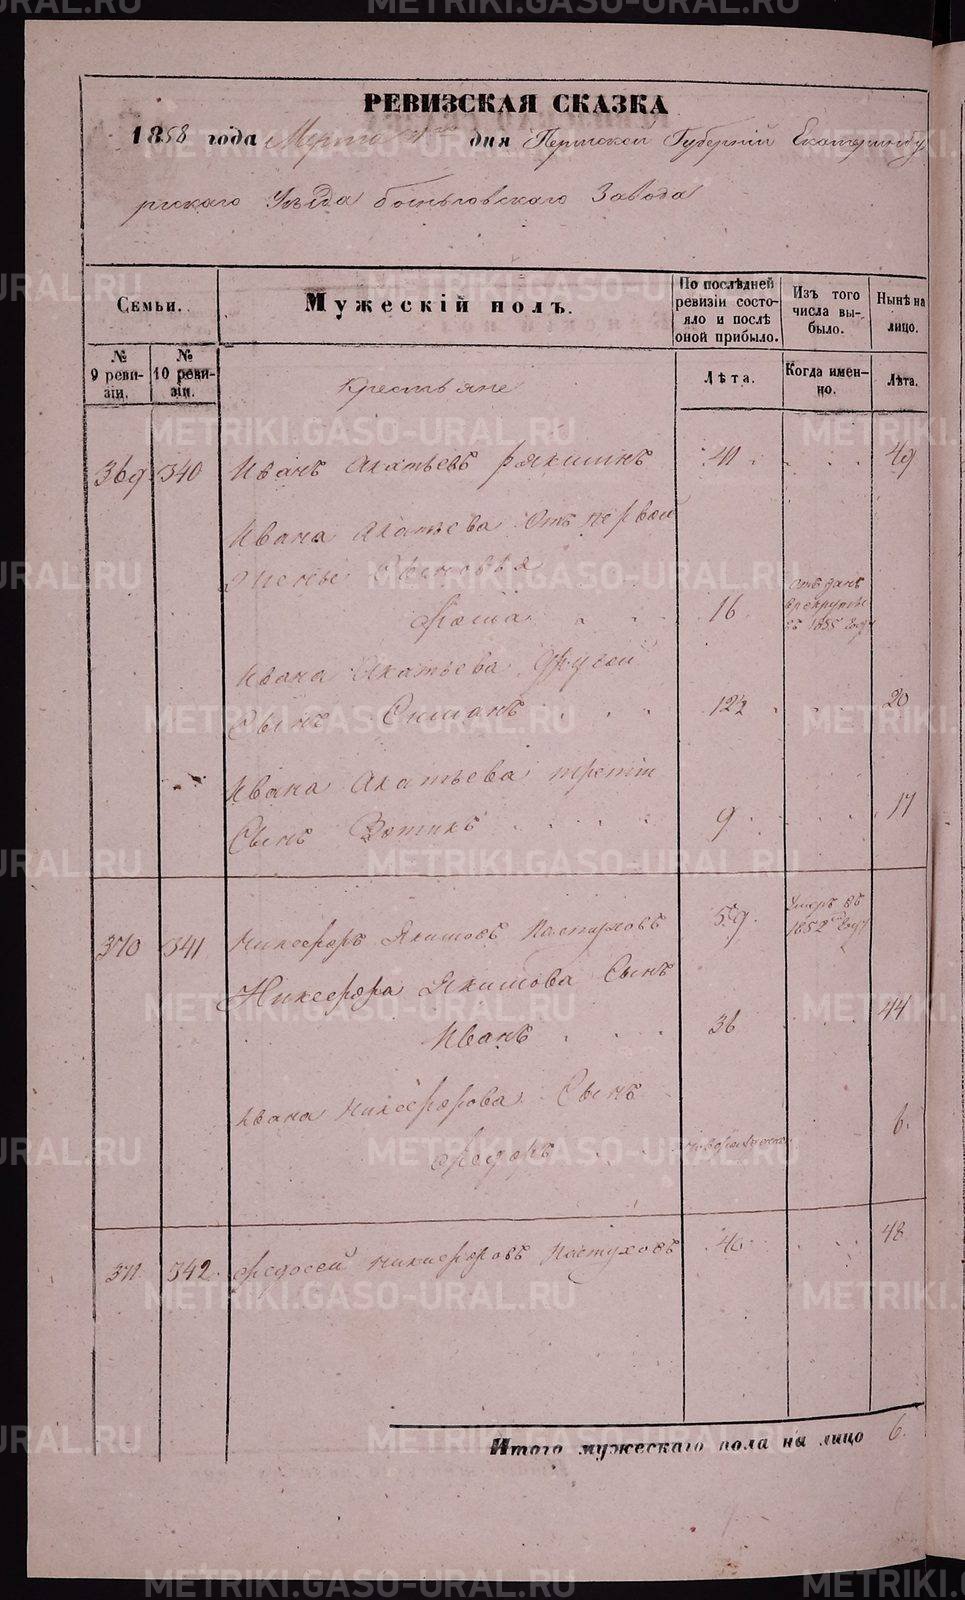 РЕВИЗСКАЯ СКАЗКА
1858 года Марта дня Пермской Губерній Екатеринбу
ргскаго Уѣзда Быньговскаго Завода
Семьи.
Мужескій полъ.
По послѣдней ревизіи состояло и послѣ оной прибыло.
Изъ того числа выбыло.
Нынѣ на лицо.
№ 9 ревизіи.
№ 10 ревизіи.
Лѣта.
Когда именно.
Лѣта.
Крестьяне
369 340 Иванъ Акатьевъ 41 49
Ивана Акатьева Отъ первой
Жены Сыновья
Фома 16 отданъ в рекруты въ 1855 году
Ивана Акатьева другой
Сынъ 12½ 20
Ивана Акатьева третій
Сынъ Зотикъ 9 17
370 341 Никифоръ Якимовъ Пастуховъ 59 умеръ въ 1852 году
Никифора Якимова Сынъ
Иванъ 36 44
Ивана Никифорова Сынъ
Федоръ новорожденный 6
371 342 Федосей Никифоровъ Пастуховъ 40 48
Итого мужескаго пола на лицо 6.
METRIKI.GASO-URAL.RU